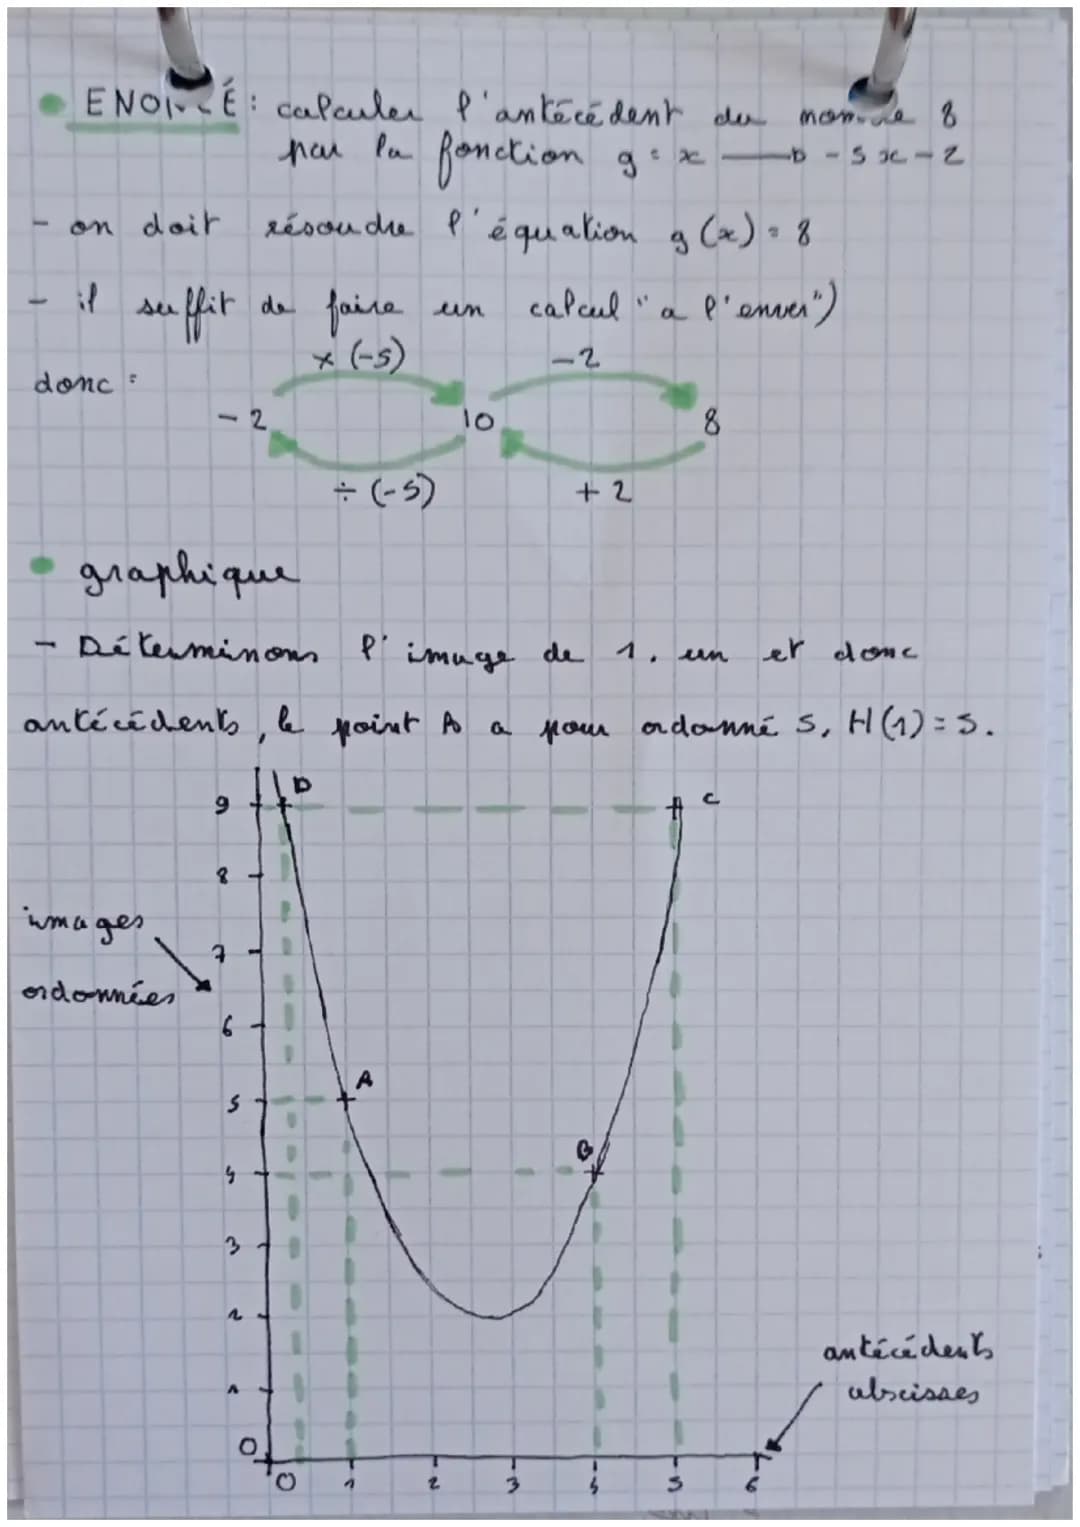 ENONCÉ : calculer l'antécédent du nombre 8
par la fonction g : x → -5x - 2
- on doit résoudre l'équation g(x) = 8
- il suffit de faire un calcul "a l'enver")
× (-5) -2
donc :
-2 10 8
÷ (-5) +2
graphique
- Déterminons l'image de 1. un et donc
antécédents, le point A a pour ordonné 5, H(1) = 5.
D
9 C
8
images
7
ordonnées
6
A
5
B
4
3
2
antécédents
1 abscisses
0
0 1 2 3 4 5 6